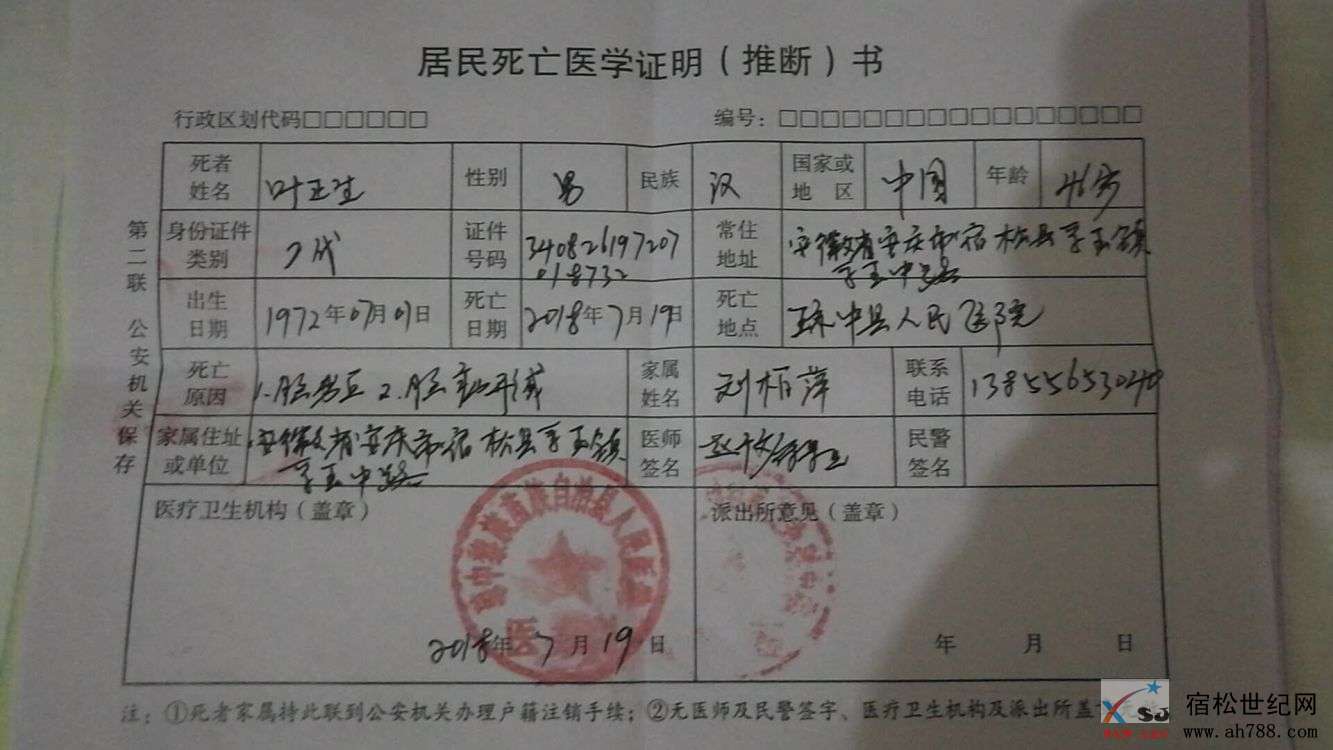 居民死亡医学证明（推断）书
行政区划代码□□□□□□
编号：□□□□□□□□□□□□□□□□□
第二联 公安机关保存
死者姓名 叶正生 性别 男 民族 汉 国家或地区 中国 年龄 46岁
身份证件类别 二代 证件号码 340826197207018732 常住地址 安徽省安庆市宿松县孚玉镇孚玉中路
出生日期 1972年07月01日 死亡日期 2018年7月19日 死亡地点 琼中县人民医院
死亡原因 家属姓名 刘柏萍 联系电话 13855653040
家属住址或单位 安徽省安庆市宿松县孚玉镇孚玉中路 医师签名 民警签名
医疗卫生机构（盖章）
派出所意见（盖章）
琼中黎族苗族自治县人民医院
2018年7月19日
年 月 日
注：①死者家属持此联到公安机关办理户籍注销手续；②无医师及民警签字、医疗卫生机构及派出所盖
XSJ
宿松世纪网
www.ah788.com